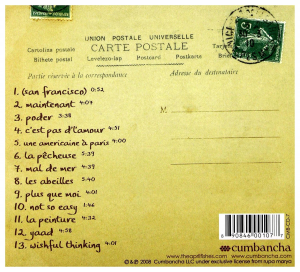 UNION POSTALE UNIVERSELLE
CARTE POSTALE
Cartolina postale Tarjeta postal
Bilhete postal Levelezo-lap Postcard Postkarte Brefkort
Partie réservée à la correspondance
Adresse du destinataire
M
1. (san francisco) 0:52
2. maintenant 4:07
3. poder 3:38
4. c'est pas d'l'amour 4:31
5. une americaine à paris 4:00
6. la pêcheuse 5:39
7. mal de mer 4:39
8. les abeilles 5:40
9. plus que moi 4:01
10. not so easy 1:46
11. la peinture 4:32
12. yaad 4:58
13. wishful thinking 4:01
CMB-CD-7
8 90846 00107 7
cumbancha
www.theaprilfishes.com www.cumbancha.com
©&℗ 2008 Cumbancha LLC under exclusive license from rupa marya